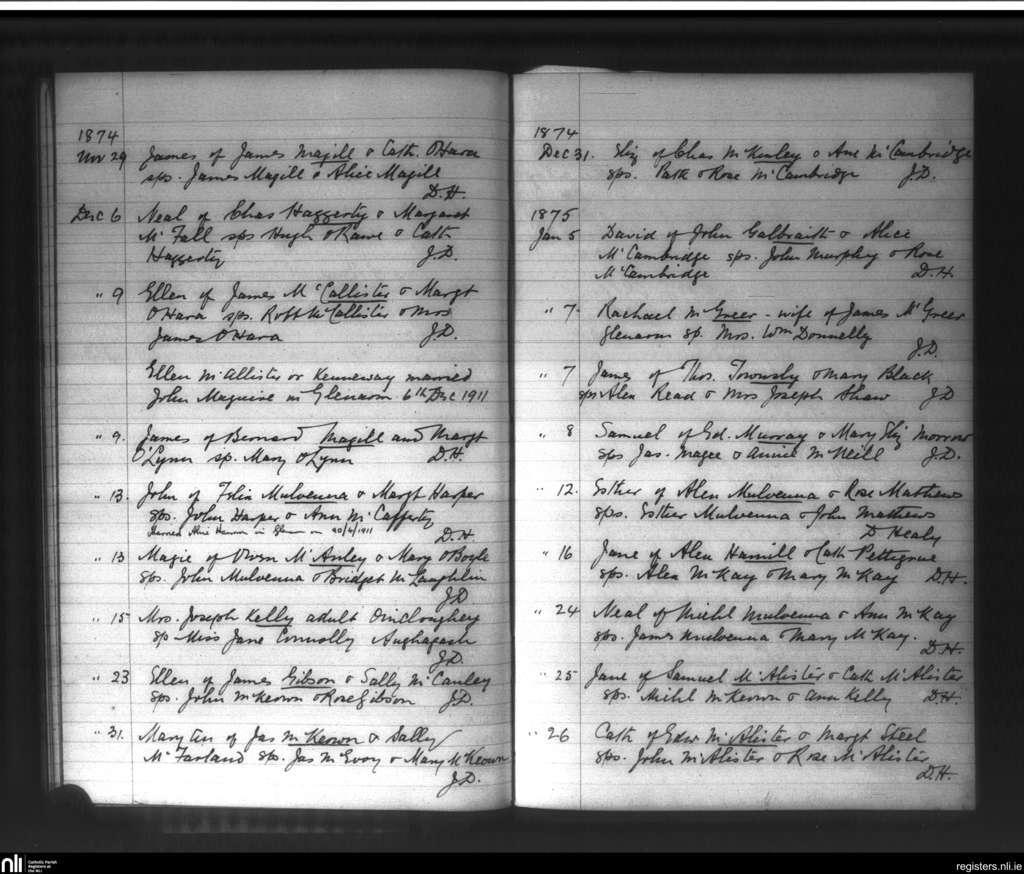 1874
Nov 29 James of James Magill & Cath. O'Hara
sps. James Magill & Alice Magill
D.H.
Dec 6 Neal of Chas Haggerty & Margaret
McFall sps Hugh O'Kane & Cath
Haggerty J.D.
" 9 Ellen of James McCallister & Margt
O'Hara sps. Robt McCallister & Mrs
James O'Hara J.D.
Ellen McAllister or Kenneway married
John Maguire in Glenarm 6th Dec 1911
" 9. James of Bernard Magill and Margt
O'Lynn sp. Mary O'Lynn D.H.
" 13. John of Felix Mulvenna & Margt Harper
sps. John Harper & Ann McCafferty
Married Alice in on 20/4/1911
D.H.
" 13 Magie of Owen McAuley & Mary O'Boyle
sps. John Mulvenna & Bridget McLaughlin
J.D
" 15 Mrs. Joseph Kelly adult
sp Miss Jane Connolly Aughagash
J.D.
" 23 Ellen of James Gibson & Sally McCauley
sps. John McKeown & Rose Gibson J.D.
" 31. Mary of Jas McKeown & Sally
McFarland sp. Jas McEvoy & Mary McKeown
J.D.
1874
Dec 31. Eliz of Chas McKinley & Ane McCambridge
sps. Patk & Rose McCambridge J.D.
1875
Jan 5 David of John Galbraith & Alice
McCambridge sps. John Murphy & Rose
McCambridge D.H.
" 7. Rachael McGreer - wife of James McGreer
Glenarm sp. Mrs. Wm Donnelly
J.D.
" 7 James of Thos. Townsly & Mary Black
sps Alex Read & Mrs Joseph Shaw J.D
" 8 Samuel of Ed. Murray & Mary Eliz Morrow
sps Jas. Magee & Annie McNeill J.D.
" 12. Esther of Alex Mulvenna & Rose Mathews
sps. Esther Mulvenna & John Mathews
D Healy
" 16 Jane of Alex Hamill & Cath Pettigrove
sps. Alex McKay & Mary McKay D.H.
" 24 Neal of Michl Mulvenna & Ann McKay
sps. James Mulvenna & Mary McKay.
D.H.
" 25 Jane of Samuel McAlister & Cath McAlister
sps. Michl McKeown & Ann Kelly D.H.
" 26 Cath of Edw McAlister & Margt Steel
sps. John McAlister & Rose McAlister
D.H.
nli Catholic Parish
Registers at
the NLI
registers.nli.ie